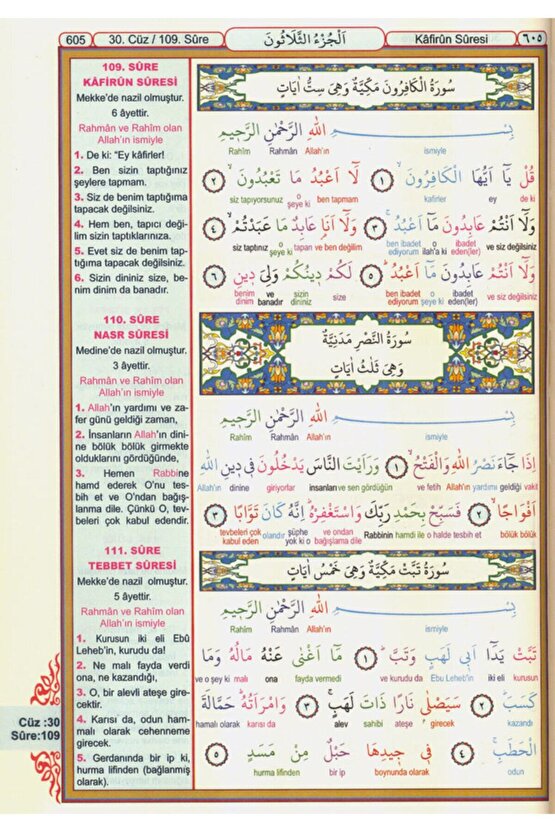 605
30. Cüz / 109. Sûre
اَلْجُزْءُ الثَّلَاثُونَ
Kâfirûn Sûresi
٦٠٥
109. SÛRE
KÂFİRÛN SÛRESİ
Mekke'de nazil olmuştur.
6 âyettir.
Rahmân ve Rahîm olan
Allah'ın ismiyle
1. De ki: "Ey kâfirler!
2. Ben sizin taptığınız
şeylere tapmam.
3. Siz de benim taptığıma
tapacak değilsiniz.
4. Hem ben, tapıcı deği-
lim sizin taptıklarınıza.
5. Evet siz de benim tap-
tığıma tapacak değilsiniz.
6. Sizin dininiz size, be-
nim dinim da banadır.
110. SÛRE
NASR SÛRESİ
Medine'de nazil olmuştur.
3 âyettir.
Rahmân ve Rahîm olan
Allah'ın ismiyle
1. Allah'ın yardımı ve za-
fer günü geldiği zaman,
2. İnsanların Allah'ın dini-
ne bölük bölük girmekte
olduklarını gördüğünde,
3. Hemen Rabbine
hamd ederek O'nu tes-
bih et ve O'ndan bağış-
lanma dile. Çünkü O, tev-
beleri çok kabul edendir.
111. SÛRE
TEBBET SÛRESİ
Mekke'de nazil olmuştur.
5 âyettir.
Rahmân ve Rahîm olan
Allah'ın ismiyle
1. Kurusun iki eli Ebû
Leheb'in, kurudu da!
2. Ne malı fayda verdi
ona, ne kazandığı,
3. O, bir alevli ateşe gire-
cektir.
4. Karısı da, odun ham-
malı olarak cehenneme
girecek.
5. Gerdanında bir ip ki,
hurma lifinden (bağlanmış
olarak).
Cüz :30
Sûre:109
سُورَةُ الْكَافِرُونَ مَكِّيَّةٌ وَهِىَ سِتُّ اٰيَاتٍ
بِسْمِ اللهِ الرَّحْمٰنِ الرَّحِيمِ
Rahîm Rahmân Allah'ın ismiyle
قُلْ يَٓا اَيُّهَا الْكَافِرُونَ ﴿١﴾ لَٓا اَعْبُدُ مَا تَعْبُدُونَ ﴿٢﴾
siz tapıyorsunuz o şeye ki ben tapmam kafirler ey de ki
وَلَٓا اَنْتُمْ عَابِدُونَ مَٓا اَعْبُدُ ﴿٣﴾ وَلَٓا اَنَا عَابِدٌ مَا عَبَدْتُمْ ﴿٤﴾
siz taptınız o şeye ki tapan ve ben değilim ben ibadet ediyorum o ilah'a ki ibadet eden(ler) ve siz değilsiniz
وَلَٓا اَنْتُمْ عَابِدُونَ مَٓا اَعْبُدُ ﴿٥﴾ لَكُمْ دِينُكُمْ وَلِىَ دِينِ ﴿٦﴾
benim dinim ve banadır sizin dininiz size ben ibadet ediyorum o şeye ki ibadet eden(ler) ve siz değilsiniz
سُورَةُ النَّصْرِ مَدَنِيَّةٌ
وَهِىَ ثَلٰثُ اٰيَاتٍ
بِسْمِ اللهِ الرَّحْمٰنِ الرَّحِيمِ
Rahîm Rahmân Allah'ın ismiyle
اِذَا جَٓاءَ نَصْرُ اللهِ وَالْفَتْحُ ﴿١﴾ وَرَاَيْتَ النَّاسَ يَدْخُلُونَ فِى دِينِ اللهِ
Allah'ın dinine giriyorlar insanları ve sen gördüğün ve fetih Allah'ın yardımı geldiği vakit
اَفْوَاجًا ﴿٢﴾ فَسَبِّحْ بِحَمْدِ رَبِّكَ وَاسْتَغْفِرْهُ اِنَّهُ كَانَ تَوَّابًا ﴿٣﴾
tevbeleri çok kabul eden olandır şüphe yok ki o ve ondan bağışlama dile Rabbinin hamdi ile o halde tesbih et bölük bölük
سُورَةُ تَبَّتْ مَكِّيَّةٌ وَهِىَ خَمْسُ اٰيَاتٍ
بِسْمِ اللهِ الرَّحْمٰنِ الرَّحِيمِ
Rahîm Rahmân Allah'ın ismiyle
تَبَّتْ يَدَٓا اَبِى لَهَبٍ وَتَبَّ ﴿١﴾ مَٓا اَغْنٰى عَنْهُ مَالُهُ وَمَا
ve o şey ki malı ona fayda vermedi ve kurudu da Ebu Leheb'in iki eli kurusun
كَسَبَ ﴿٢﴾ سَيَصْلٰى نَارًا ذَاتَ لَهَبٍ ﴿٣﴾ وَامْرَاَتُهُ حَمَّالَةَ
hamalı olarak karısı da alev sahibi ateşe girecek kazandı
الْحَطَبِ ﴿٤﴾ فِى جِيدِهَا حَبْلٌ مِنْ مَسَدٍ ﴿٥﴾
hurma lifinden bir ip boynunda olarak odun